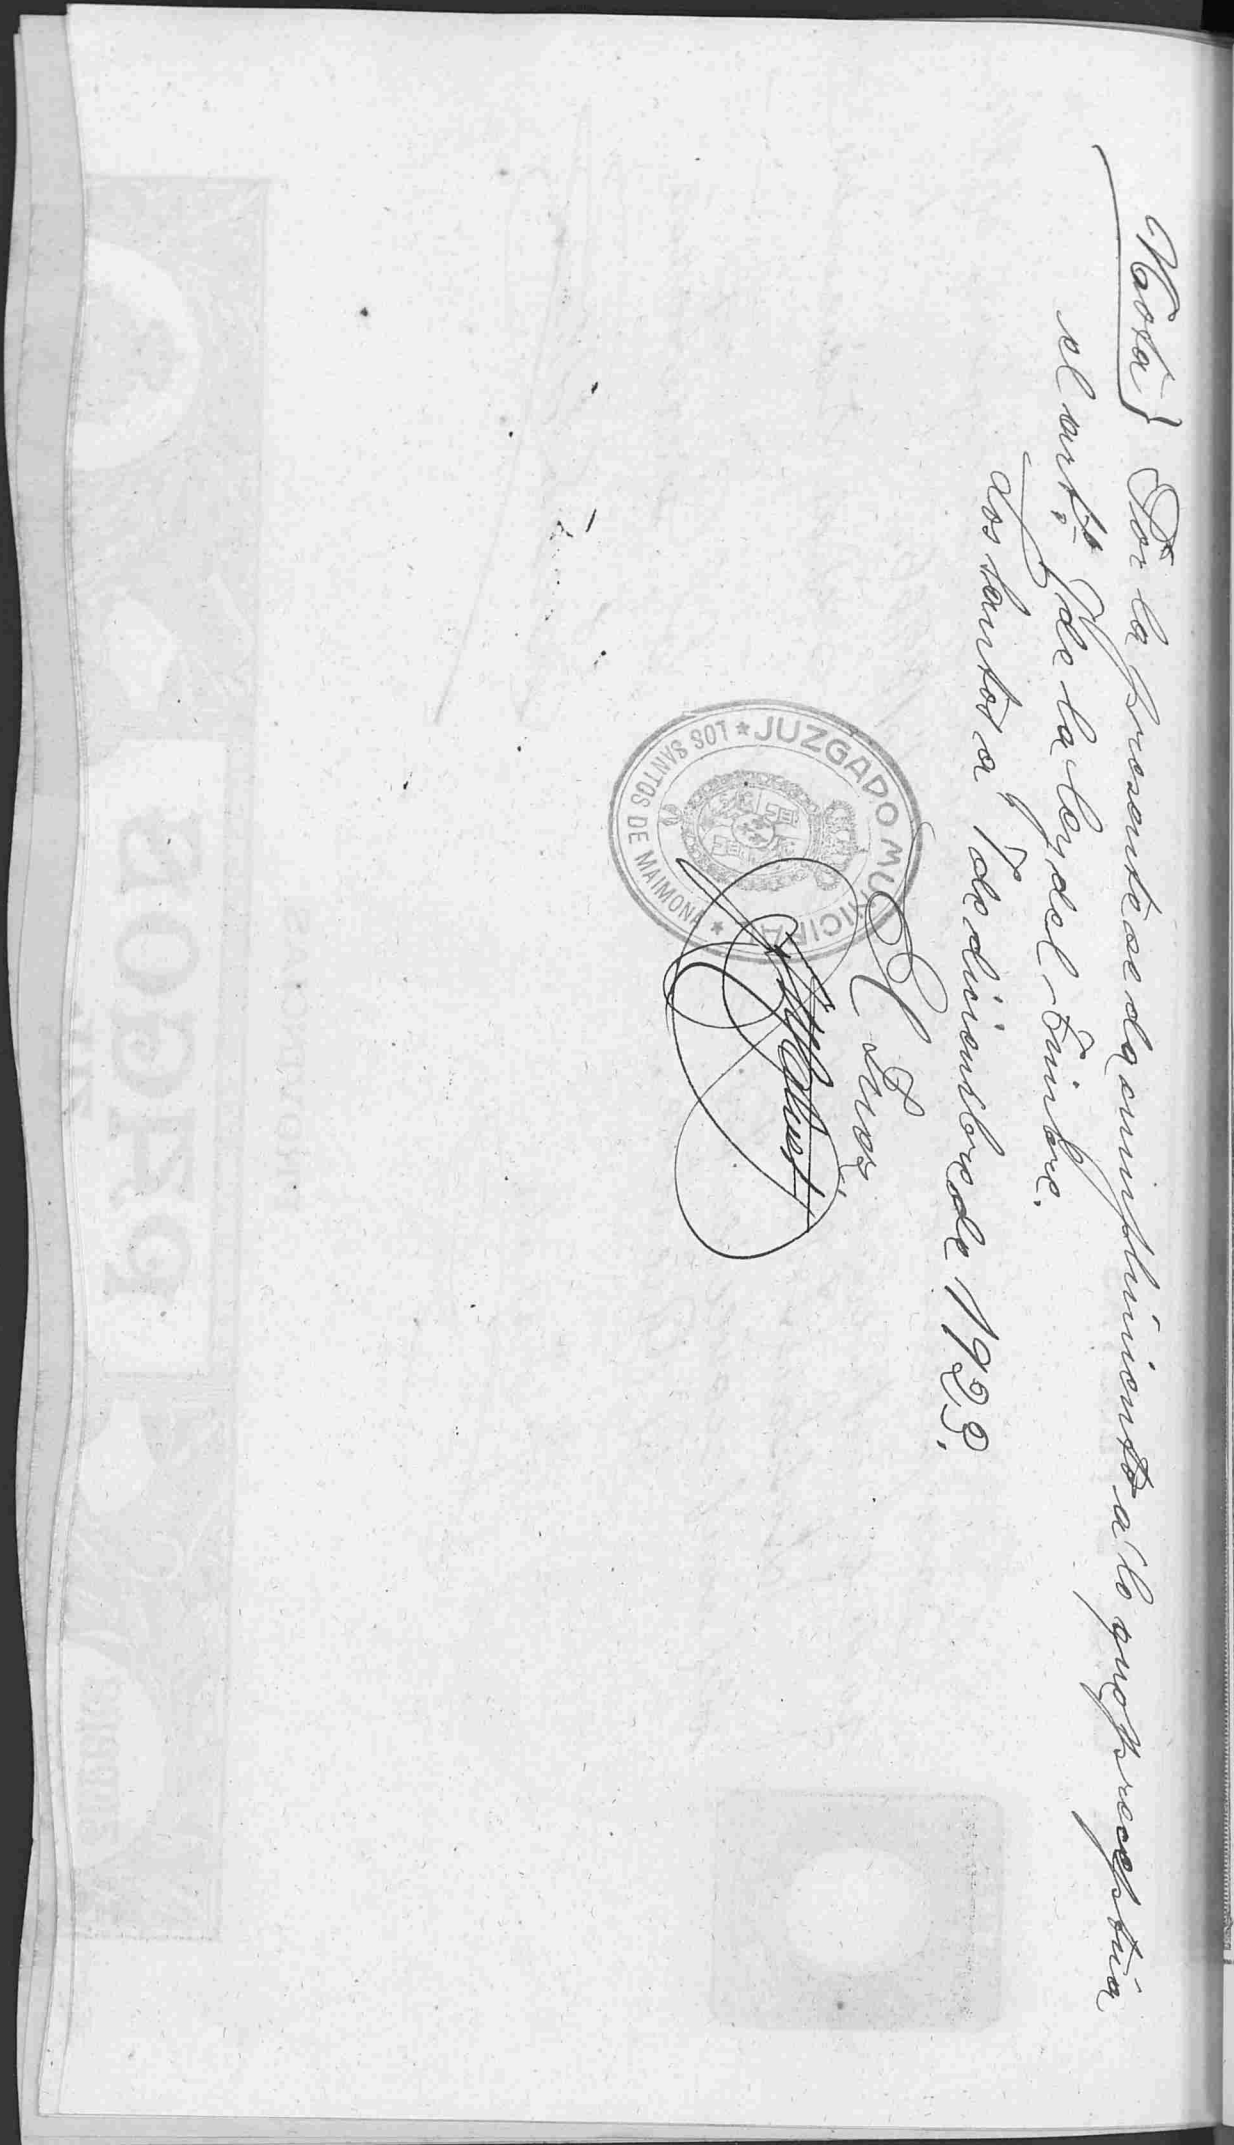 Nota} Por la presente se da cumplimiento a lo que preceptúa
el artº de la ley del timbre.
los santos a 7 de diciembre de 1923.
El Juez,
JUZGADO MUNICIPAL
★ LOS SANTOS DE MAIMONA ★